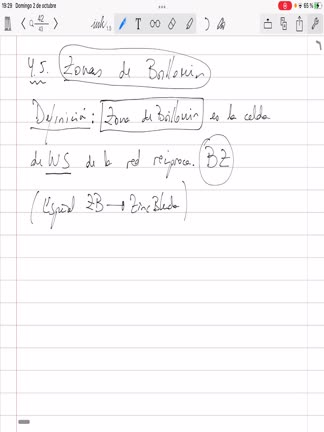 19:29 Domingo 2 de octubre
65 %
42
43
4.5. Zonas de Brillouin
Definición: Zona de Brillouin es la celda
de WS de la red recíproca. BZ
ZB → Zinc Blenda)